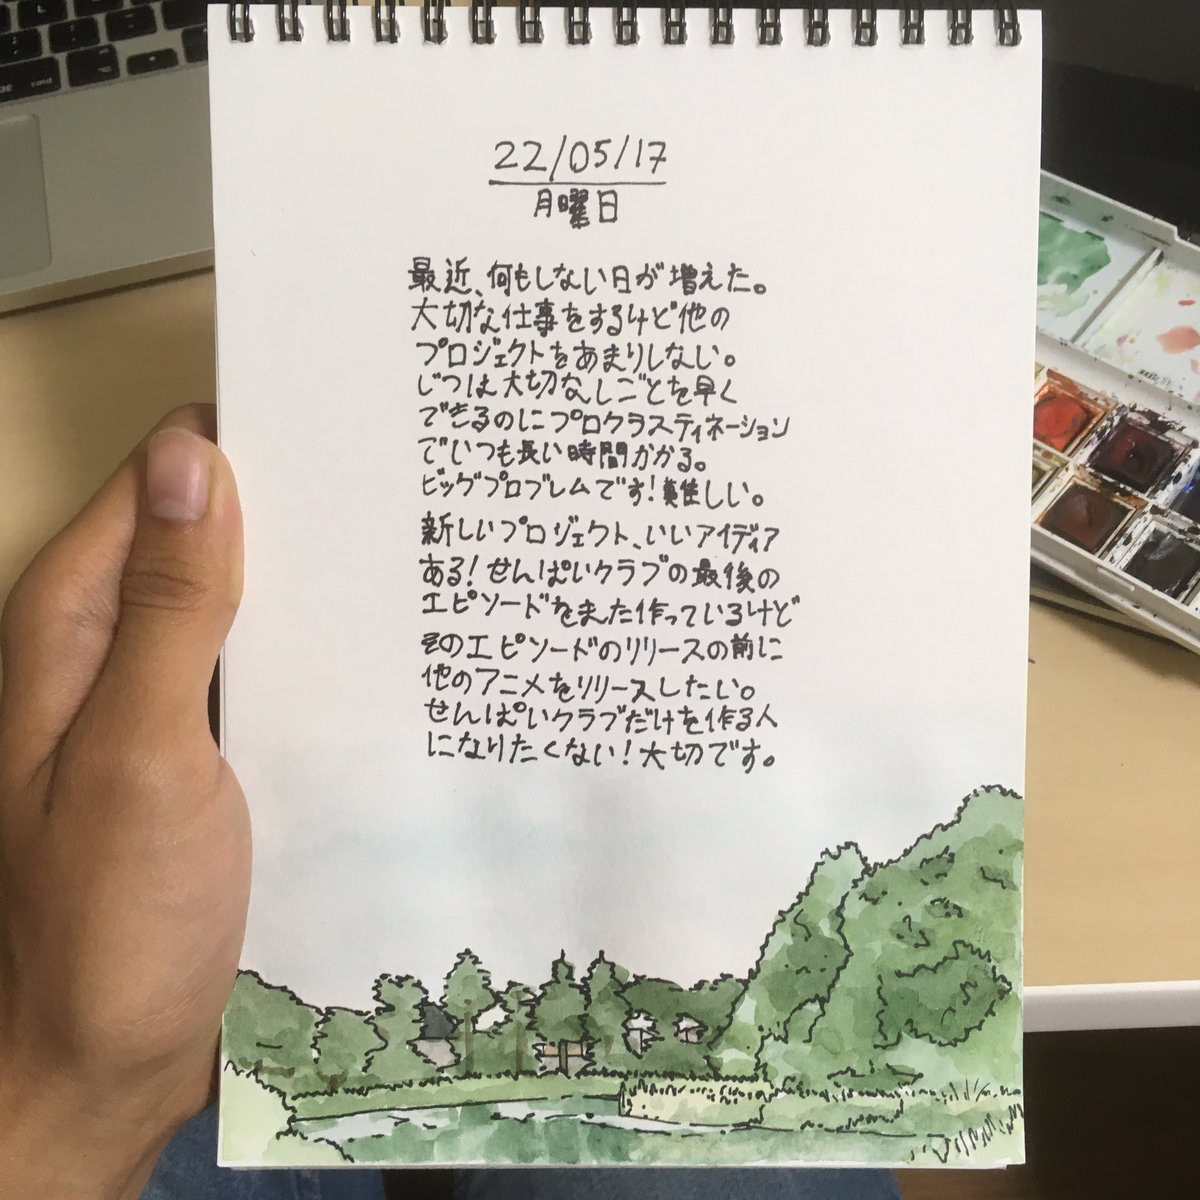 22/05/17
月曜日
最近、何もしない日が増えた。
大切な仕事をするけど他の
プロジェクトをあまりしない。
じつは大切なしごとを早く
できるのにプロクラスティネーション
でいつも長い時間かかる。
ビッグプロブレムです!難しい。
新しいプロジェクト、いいアイディア
ある!せんぱいクラブの最後の
エピソードをまた作っているけど
そのエピソードのリリースの前に
他のアニメをリリースしたい。
せんぱいクラブだけを作る人
になりたくない!大切です。